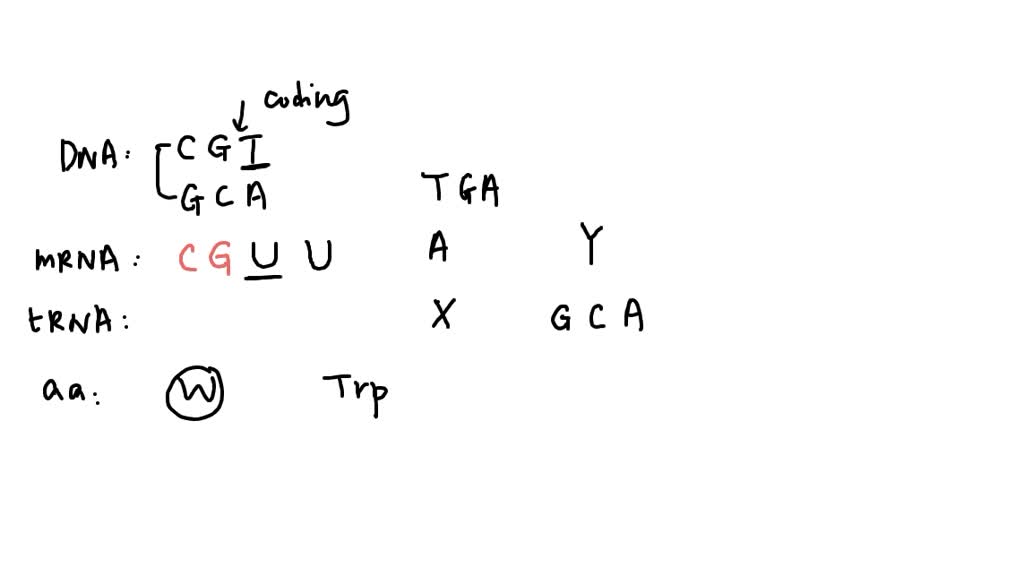 coding
DNA: C G T
G C A
T G A
mRNA: C G U U A Y
tRNA: X G C A
aa: W Trp